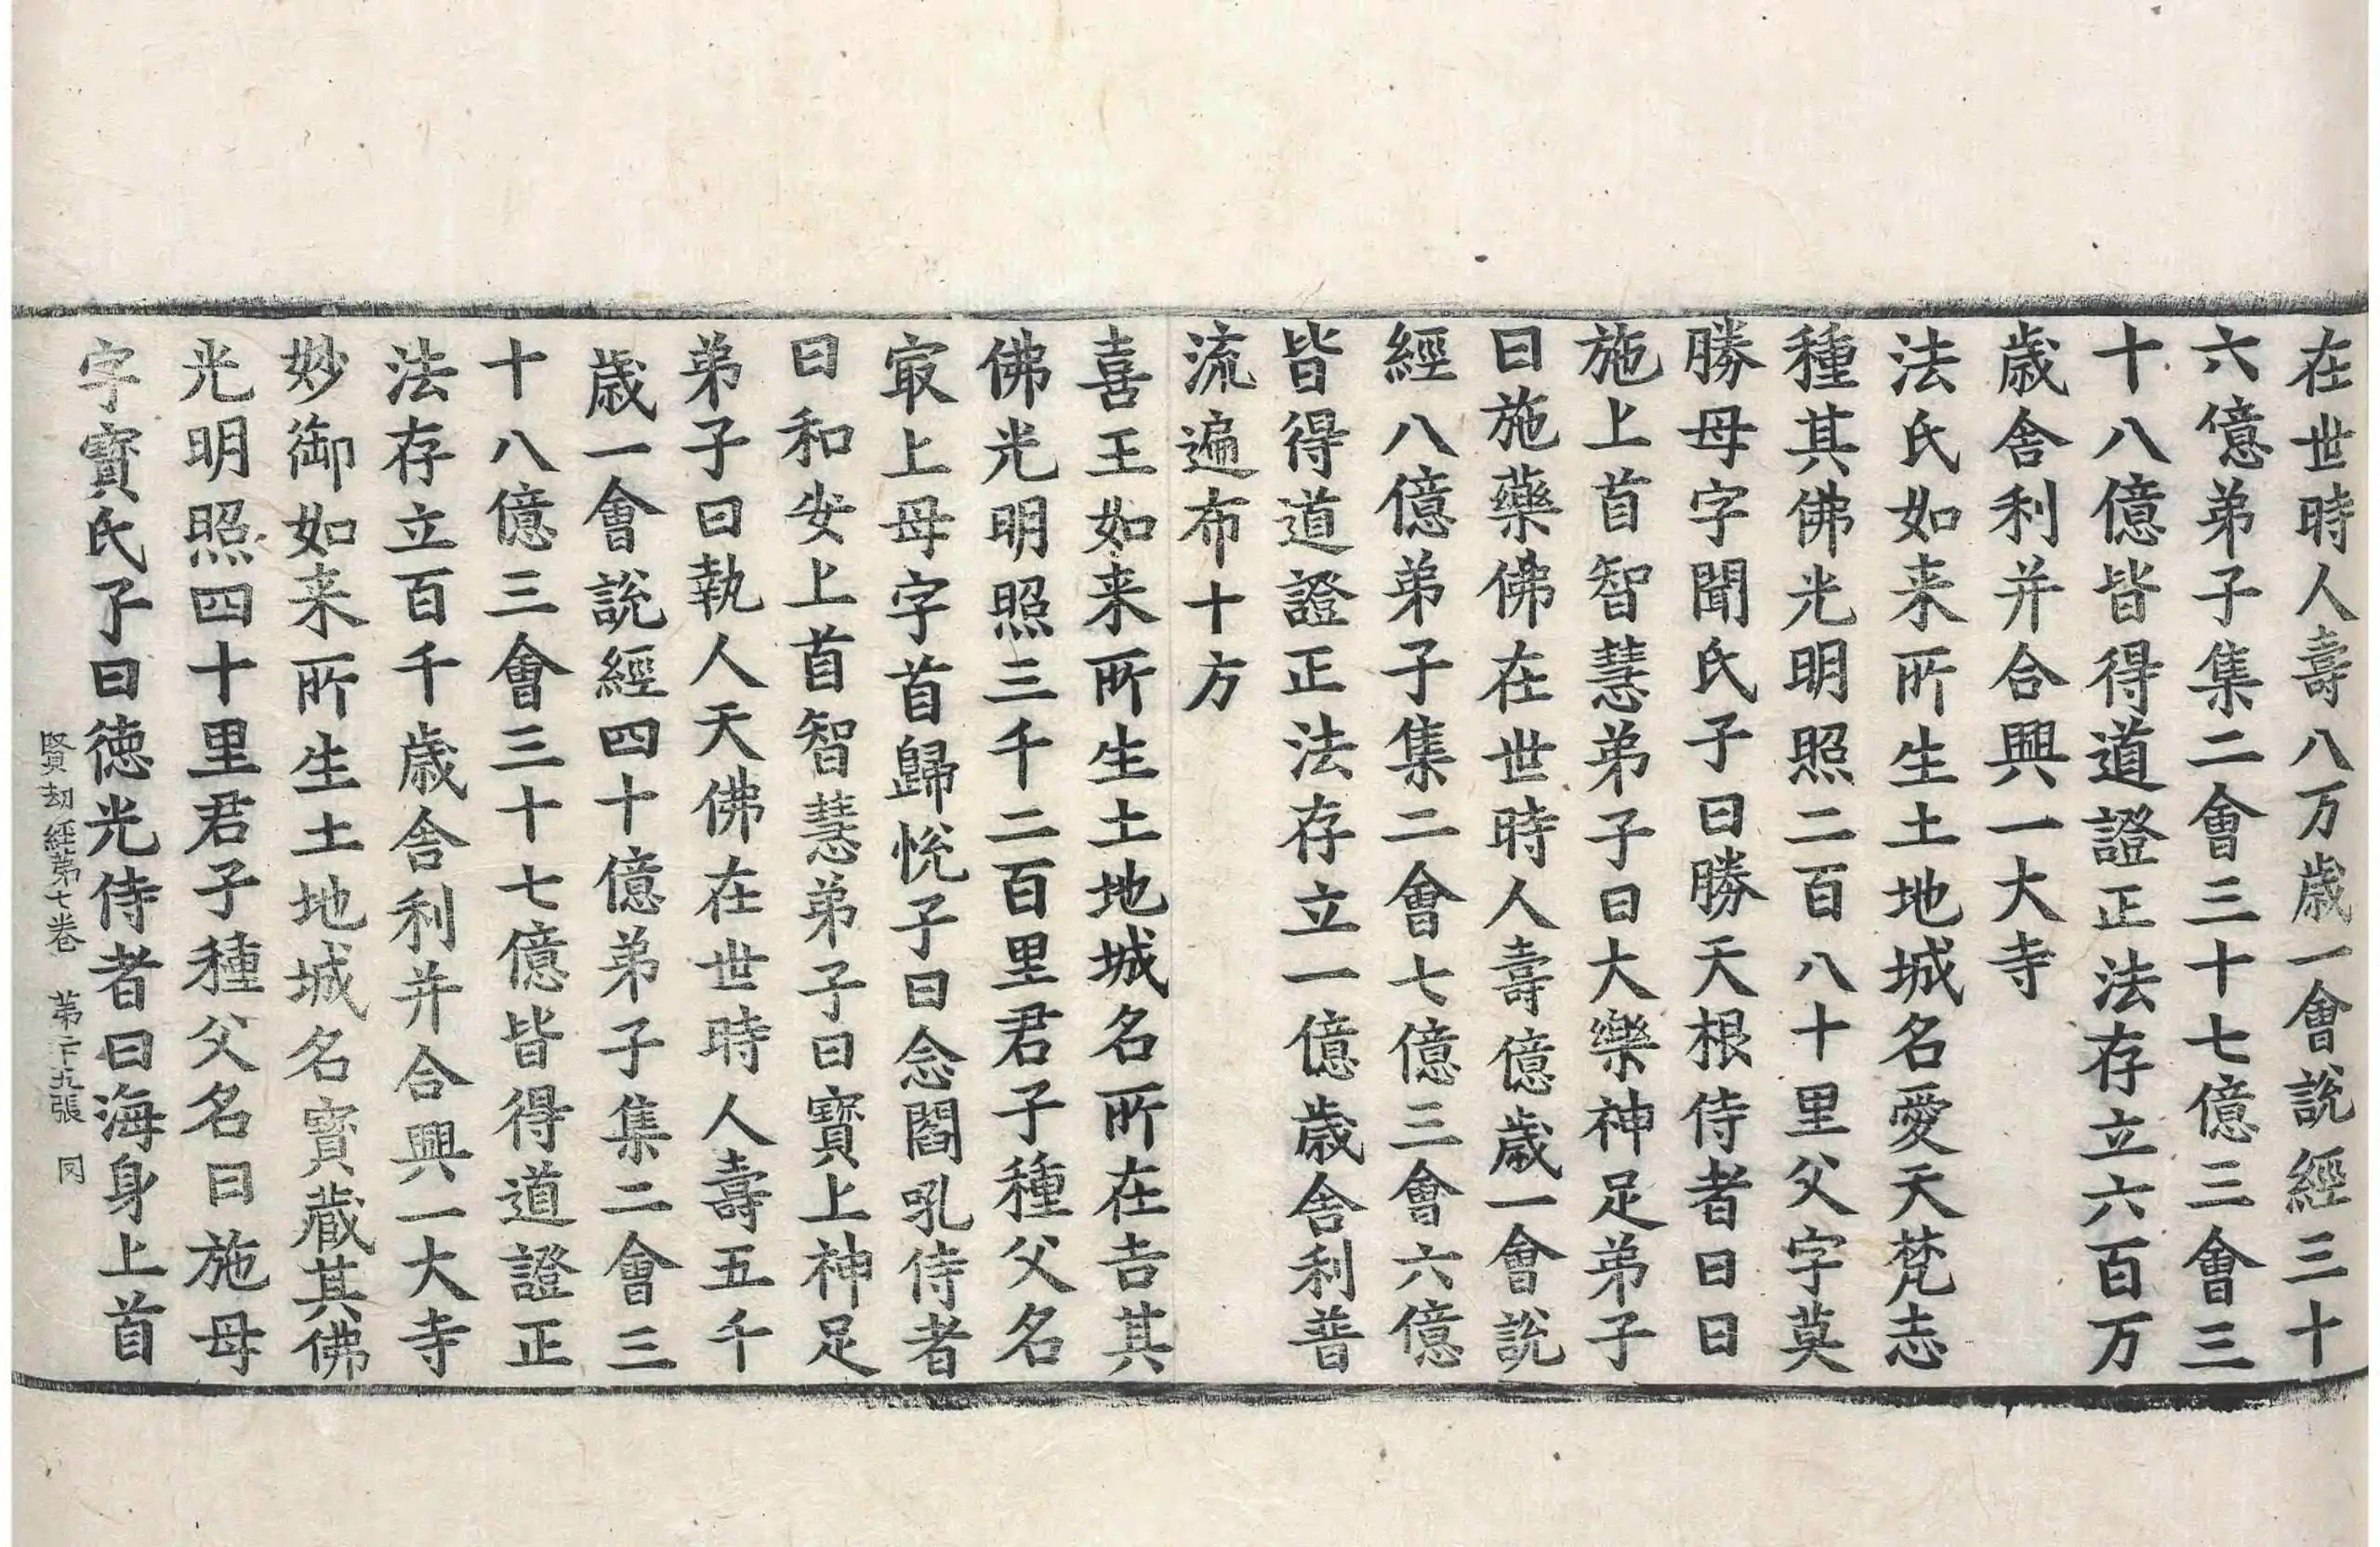 在世時人壽八万歳一會說經三十
六億弟子集二會三十七億三會三
十八億皆得道證正法存立六百万
歳舎利并合興一大寺
法氏如来所生土地城名愛天梵志
種其佛光明照二百八十里父字莫
勝母字聞氏子曰勝天根侍者曰日
施上首智慧弟子曰大樂神足弟子
曰施藥佛在世時人壽億歳一會說
經八億弟子集二會七億三會六億
皆得道證正法存立一億歳舎利普
流遍布十方
喜王如来所生土地城名所在吉其
佛光明照三千二百里君子種父名
㝡上母字首歸悅子曰念閻吼侍者
曰和安上首智慧弟子曰寳上神足
弟子曰執人天佛在世時人壽五千
歳一會說經四十億弟子集二會三
十八億三會三十七億皆得道證正
法存立百千歳舎利并合興一大寺
妙御如来所生土地城名寳藏其佛
光明照四十里君子種父名曰施母
字寳氏子曰徳光侍者曰海身上首
賢劫經第七卷 第二十九張 同